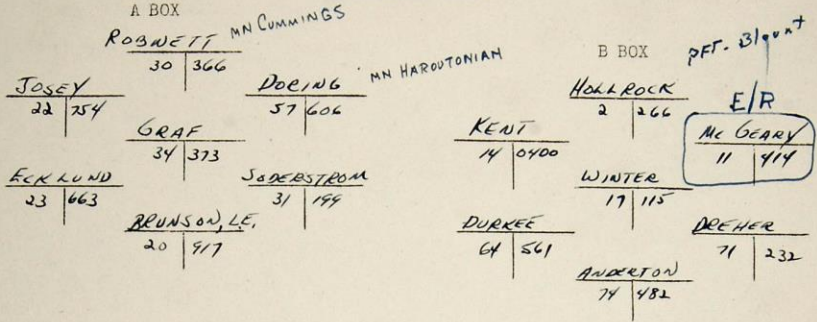 A BOX
ROBNETT MN CUMMINGS
30 366
JOSEY
22 754
DORING MN HAROUTONIAN
57 606
GRAF
34 373
ECKLUND
23 663
SODERSTROM
31 199
BRUNSON, L.E.
20 917
B BOX
PFT. Blount
HOLLROCK
2 266
E/R
Mc GEARY
11 414
KENT
14 0400
WINTER
17 115
DURKEE
64 561
DREHER
71 232
ANDERTON
74 482